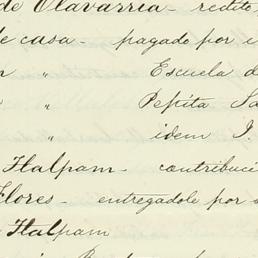 de Olavarria - redito,
e casa - pagado por
" Escuela d
" Pepita Sa
" idem I.
Tlalpam - contribuci
Flores - entregadole por
Tlalpam